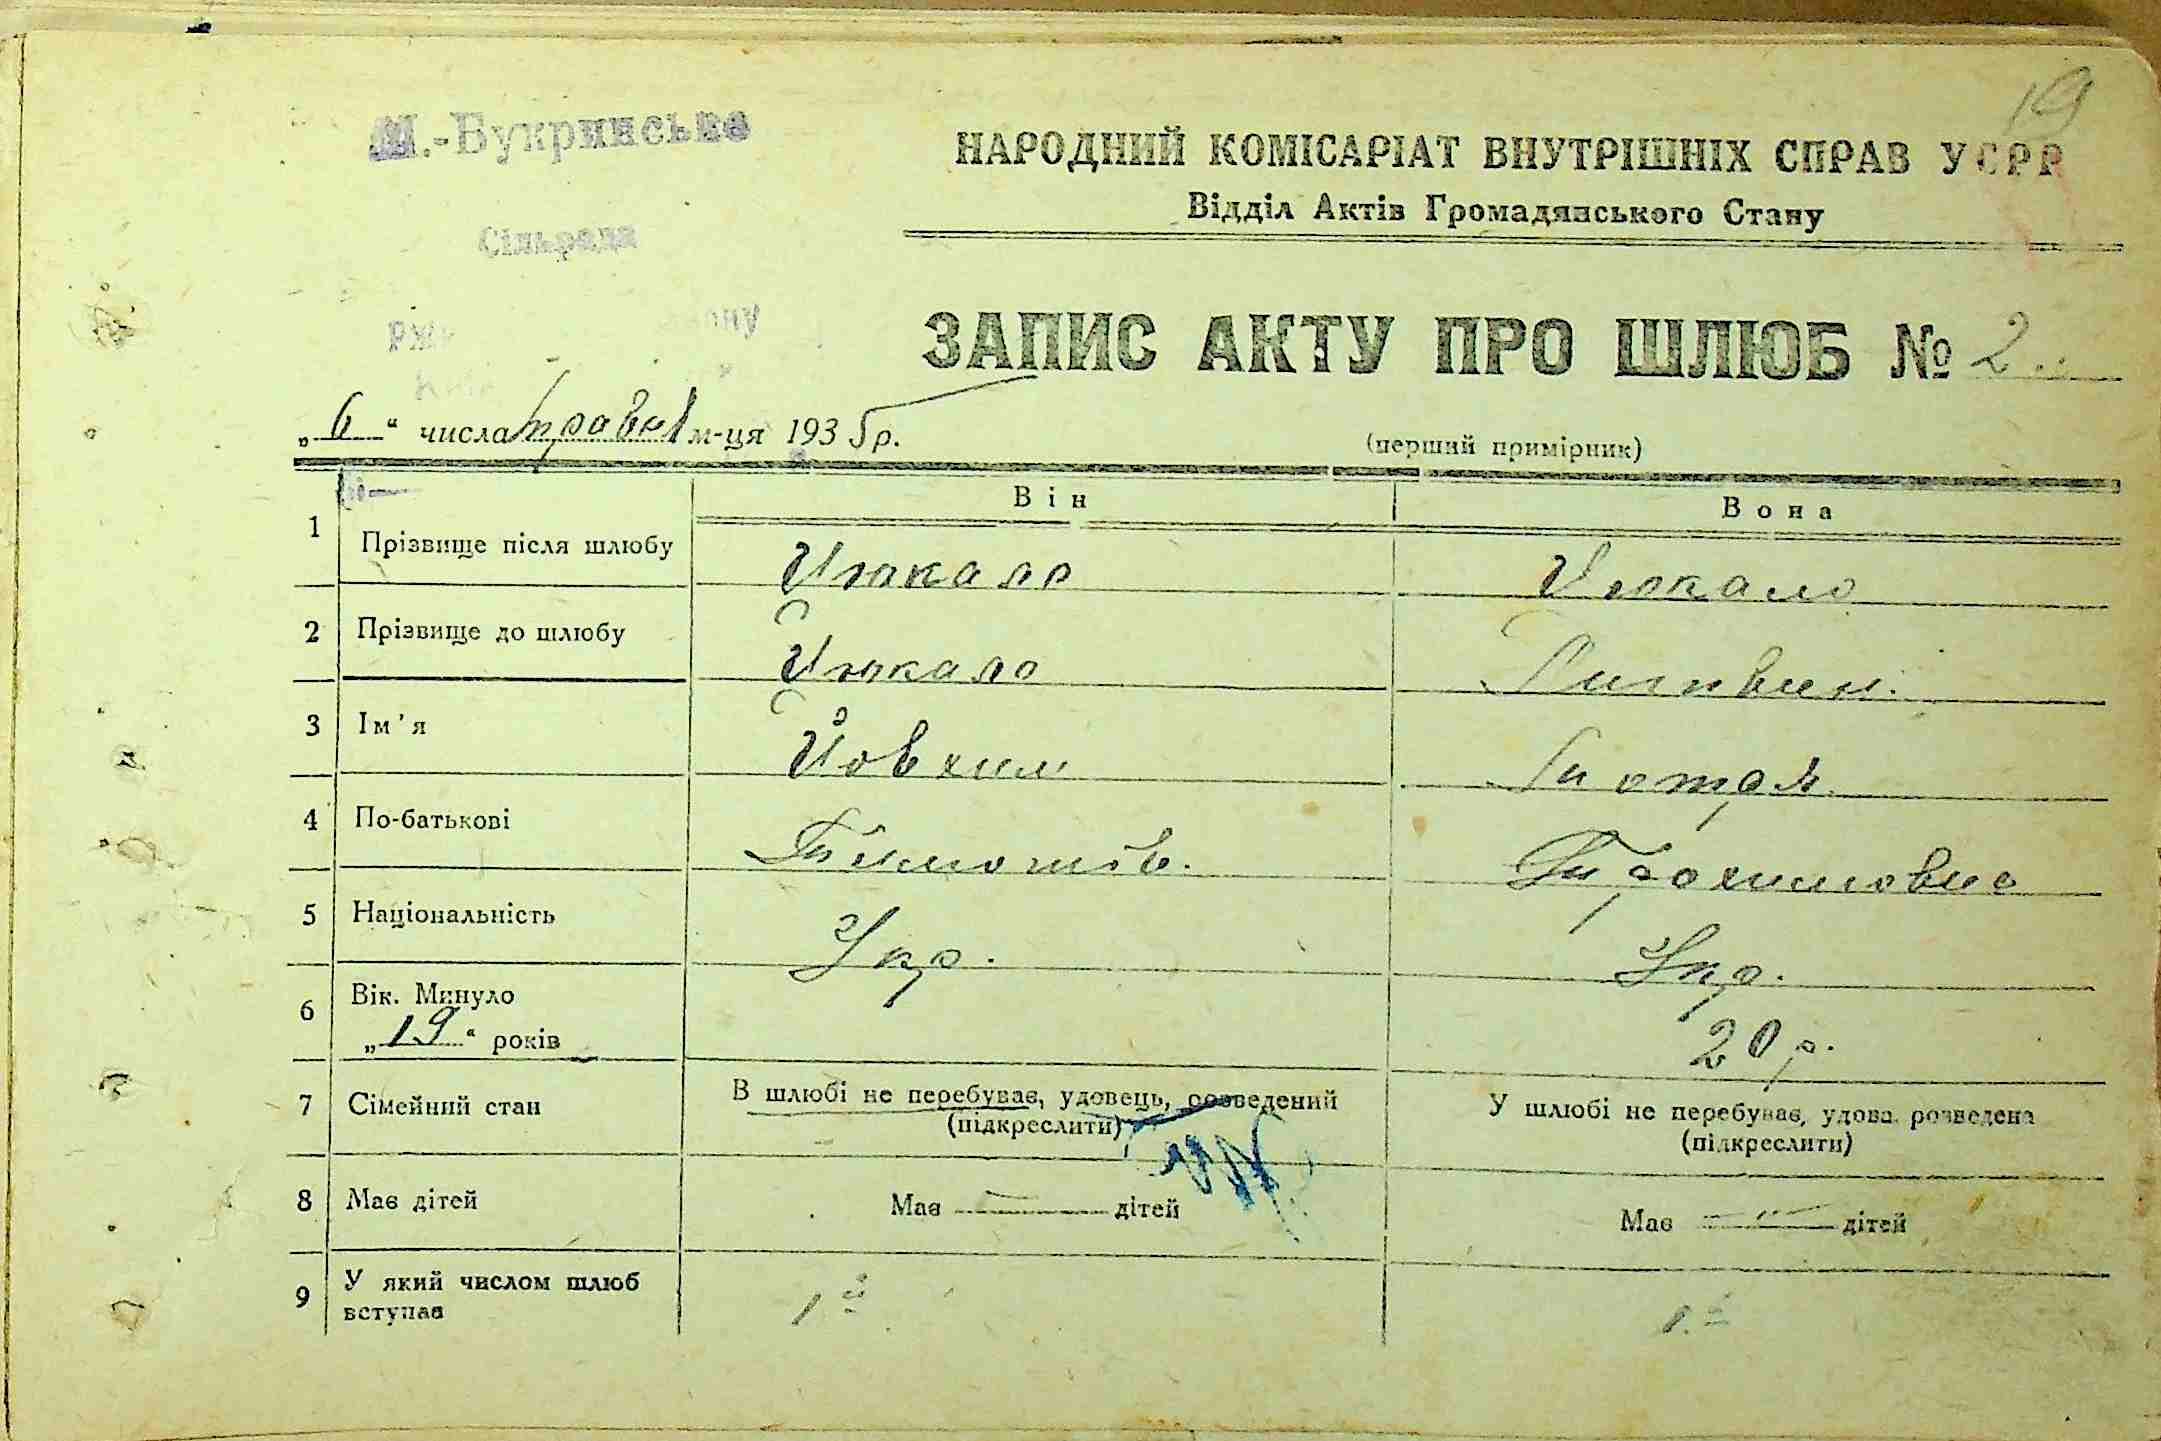 19
М.-Букринська
НАРОДНИЙ КОМІСАРІАТ ВНУТРІШНІХ СПРАВ УСРР
Відділ Актів Громадянського Стану
Сільрада
ЗАПИС АКТУ ПРО ШЛЮБ № 2
„ 6 “ числа травня м-ця 1935 р.
(перший примірник)
Він Вона
1 Прізвище після шлюбу Цюкало Цюкало
2 Прізвище до шлюбу Цюкало Литвин.
3 Ім'я Йовхим Мотря
4 По-батькові Тимошів. Трохимовна
5 Національність Укр. Укр.
6 Вік. Минуло „ 19 “ років 20 р.
7 Сімейний стан В шлюбі не перебуває, удовець, розведений (підкреслити) У шлюбі не перебуває, удова, розведена (підкреслити)
8 Має дітей Має — дітей Має — " — дітей
9 У який числом шлюб вступає 1й 1й